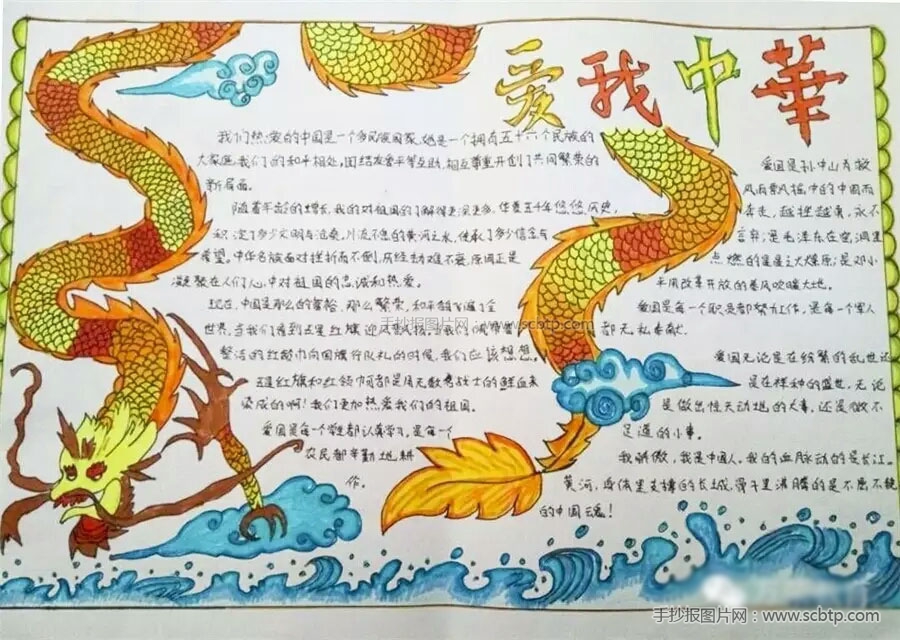 爱我中華
我们热爱的中国是一个多民族国家,她是一个拥有五十六个民族的
大家庭,我们的和平相处,团结友爱平等互助,相互尊重开创了共同繁荣的
新局面。
随着年龄的增长,我的对祖国的了解得更深更多,华夏五千年悠悠历史,
积淀了多少文明与沧桑,川流不息的黄河之水,传承了多少信念与
希望。中华名族面对挫折而不倒,历经劫难不衰,原因正是
凝聚在人们心中对祖国的忠诚和热爱。
现在,中国是那么的富裕,那么繁荣,和平鸽飞遍了全
世界,当我们看到五星红旗迎风飘扬,当我们佩带着
整洁的红领巾向国旗行队礼的时候,我们应该想想,
五星红旗和红领巾都是用无数老战士的鲜血来
染成的啊!我们更加热爱我们的祖国。
爱国是每一个学生都认真学习,是每一个
农民都辛勤地耕
作。
爱国是孙中山为救
风雨飘摇中的中国而
奔走,越挫越勇,永不
言弃;是毛泽东在窑洞里
点燃的星星之火燎原;是邓小
平用改革开放的春风吹暖大地。
爱国是每一个职员都努力工作,是每一个军人
都无私奉献。
爱国无论是在纷繁的乱世还
是在祥和的盛世,无论
是做出惊天动地的大事,还是做不
足道的小事。
我骄傲,我是中国人,我的血脉动的是长江、
黄河,身体里支撑的长城,骨子里沸腾的是不屈不挠
的中国魂!
手抄报图片网:www.scbtp.com
手抄报图片网:www.scbtp.com